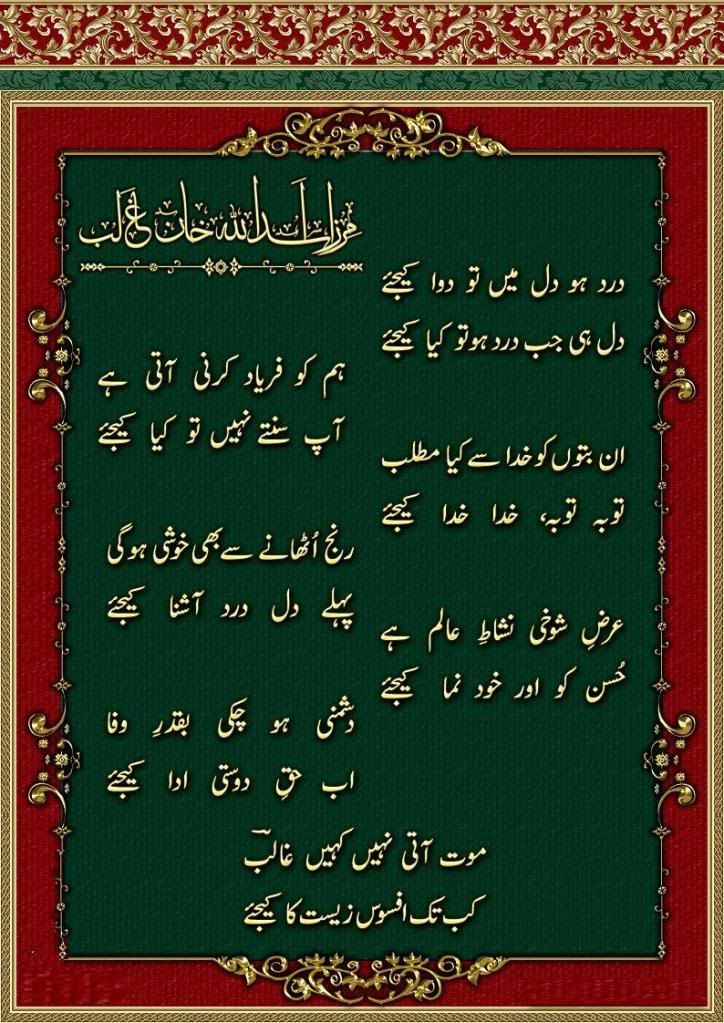 مرزا اسد اللہ خان غالب
درد ہو دل میں تو دوا کیجئے
دل ہی جب درد ہو تو کیا کیجئے
ہم کو فریاد کرنی آتی ہے
آپ سنتے نہیں تو کیا کیجئے
ان بتوں کو خدا سے کیا مطلب
توبہ توبہ، خدا خدا کیجئے
رنج اُٹھانے سے بھی خوشی ہوگی
پہلے دل درد آشنا کیجئے
عرضِ شوخی نشاطِ عالم ہے
حُسن کو اور خود نما کیجئے
دشمنی ہو چکی بقدرِ وفا
اب حقِ دوستی ادا کیجئے
موت آتی نہیں کہیں غالبؔ
کب تک افسوس زیست کا کیجئے